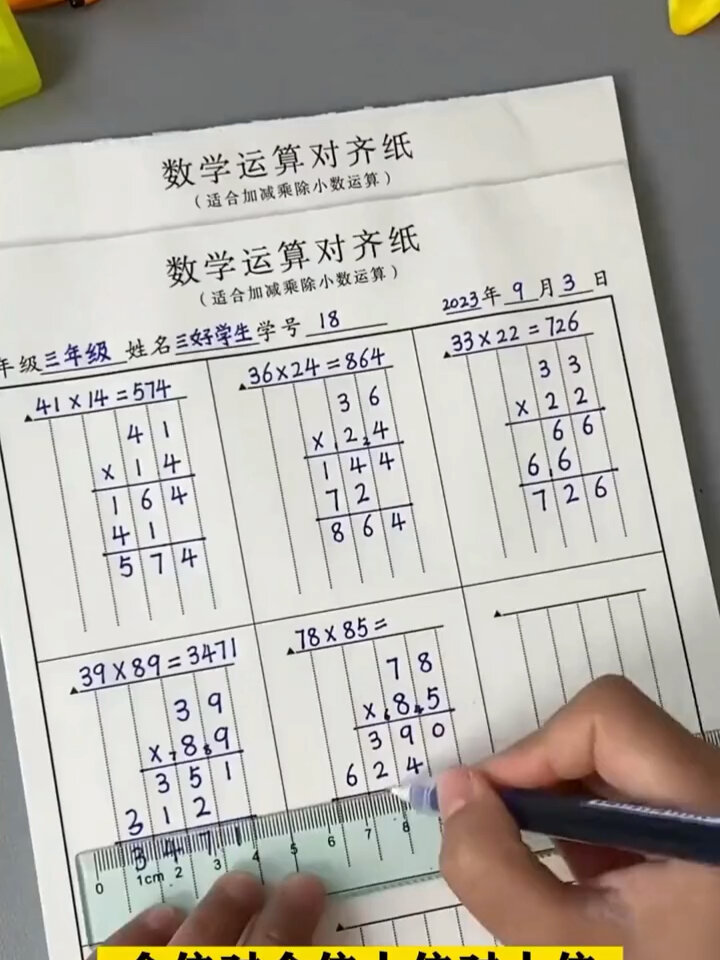 数学运算对齐纸
（适合加减乘除小数运算）
数学运算对齐纸
（适合加减乘除小数运算）
2023年 9 月 3 日
年级三年级 姓名三好学生学号 18
41×14=574
41
×14
164
41
574
36×24=864
36
×2₂4
144
72
864
33×22=726
33
×22
66
66
726
39×89=3471
39
×₇8₈9
351
312
3471
78×85=
78
×₆8₄5
390
624
0 1cm 2 3 4 5 6 7 8